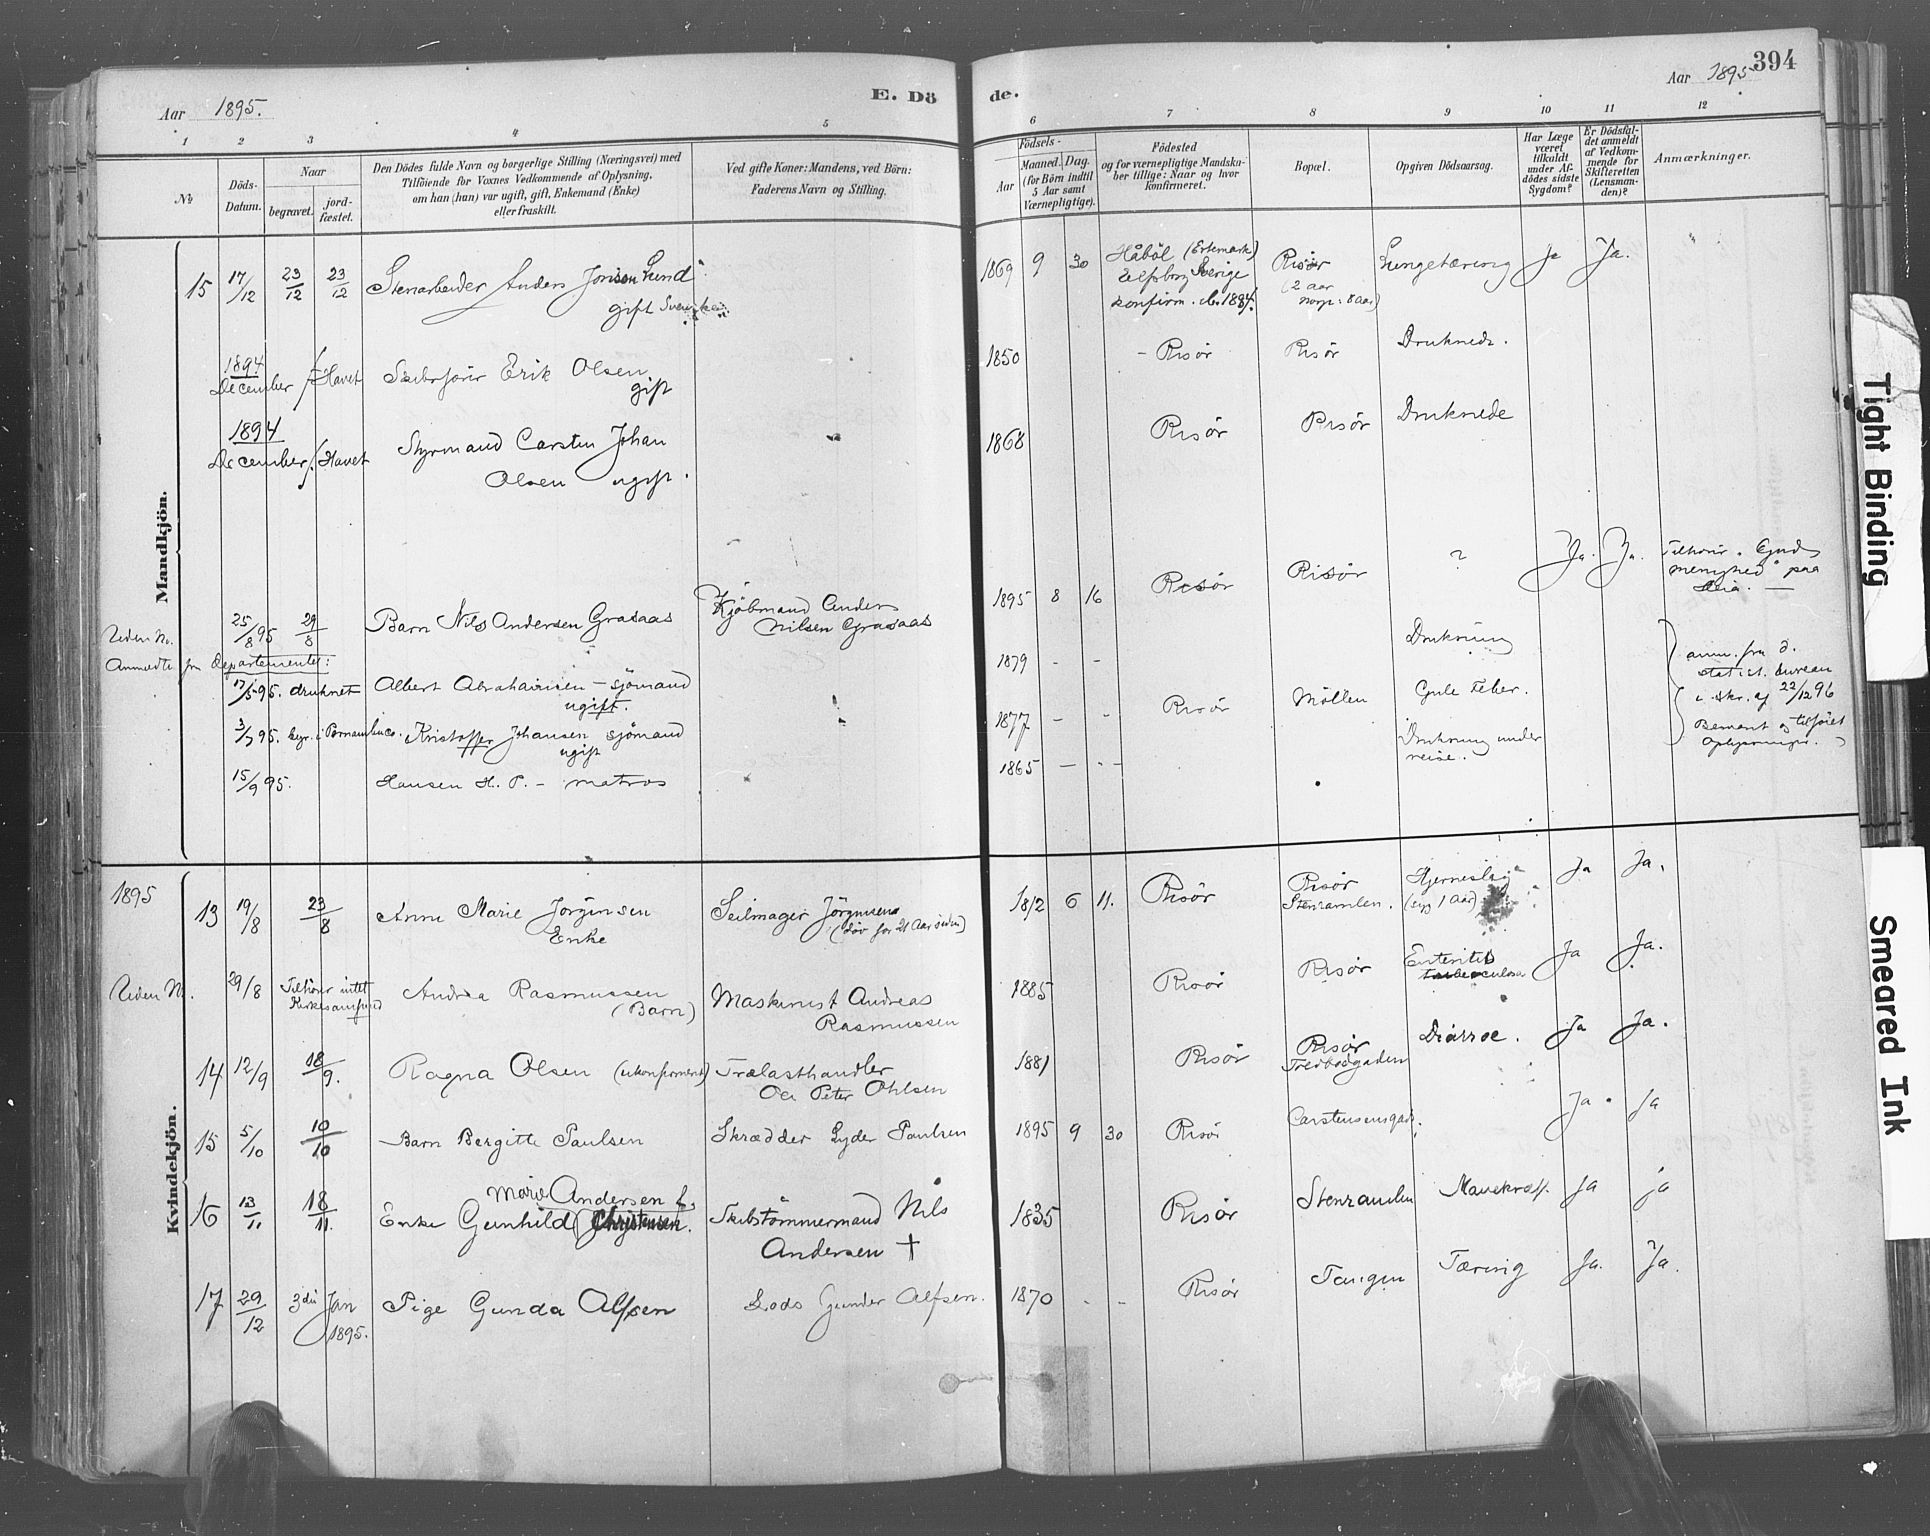 394
Aar 1895.
E. Dö
de.
Aar 1895
1 2 3 4 5 6 7 8 9 10 11 12
№
Döds-
Datum.
Naar
begravet.
jord-
fæstet.
Den Dödes fulde Navn og borgerlige Stilling (Næringsvei) med
Tilföiende for Voxnes Vedkommende af Oplysning,
om han (hun) var ugift, gift, Enkemand (Enke)
eller fraskilt.
Ved gifte Koner: Mandens, ved Börn:
Faderens Navn og Stilling.
Födsels-
Aar
Maaned. Dag.
(for Börn indtil
5 Aar samt
Værnepligtige).
Födested
og for værnepligtige Mandska-
ber tillige: Naar og hvor
konfirmeret.
Bopæl.
Opgiven Dödsaarsag.
Har Læge
været
tilkaldt
under Af-
dödes sidste
Sygdom?
Er Dödsfal-
det anmeldt
af Vedkom-
mende for
Skifteretten
(Lensman-
den)?
Anmærkninger.
Mandkjön.
15 17/12 23/12 23/12 Stenarbeider Anders Jonsson Lund
gift
1869 9 30 Håböl (Ertemark)
Elfsborg Sverige
konfirm.
Risör
(2 aar
Norge: 8 aar)
Lungetæring Ja Ja.
1894
December i Havet Skibsförer Erik Olsen
gift
1850 - Risör Risör Druknede.
1894
December i Havet Styrmand Carsten Johan
Olsen ugift.
1868 Risör Risör Druknede
Uden No. 25/8 95 29/8 Barn Nils Andersen Grasaas Kjöbmand Anders
Nilsen Grasaas
1895 8 16 Risör Risör ? Ja. Ja. Tilhörer
menighed paa
Anmeldte fra Departementet:
17/5 95. druknet Albert Abrahamsen - sjömand
ugift.
1879 - - Drukning
3/7 95. begr. i Pernambuco. Kristoffer Johansen sjömand
ugift
1877 - - Risör Möllen Gule Feber.
15/9 95. Hansen H. P. - matros
1865 - - - Drukning under
reise.
anm. fra d.
statist. bureau
i skr. af 22/12 96
Bemant og tilföiet
Oplysninger.
Kvindekjön.
1895
13 19/8 23/8 Anne Marie Jörgensen
Enke
Seilmager Jörgensen
(död for 21 Aar siden)
1812 6 11. Risör Risör
Stenramlen.
Hjerneslag
(syg 1 Aar)
Ja Ja.
Uden No. 29/8 Tilhörer intet
Kirkesamfund
Andrea Rasmussen
(Barn)
Maskinist Andreas
Rasmussen
1885 Risör Risör Enteritis
tuberculosa
Ja Ja.
14 12/9 18/9. Ragna Olsen (ukonfirmeret) Trælasthandler
Ole Peter Ohlsen
1881 Risör Risör
Tredbodgaden
Diarroe. Ja Ja.
15 5/10 10/10 Barn Bergitte Paulsen Skrædder Lyder Paulsen
1895 9 30 Risör Carstensensgade. Ja. Ja
16 13/11 18/11. Marie Andersen f.
Enke Gunhild (Christensen. Skibstömmermand Nils
Andersen †
1835 Risör Stenramlen Mavekræft. Ja Ja
17 29/12 3die Jan
1895.
Pige Gunda Alfsen Lods Gunder Alfsen.
1870 - - Risör Tangen Tæring Ja. Ja.
Tight Binding
Smeared Ink